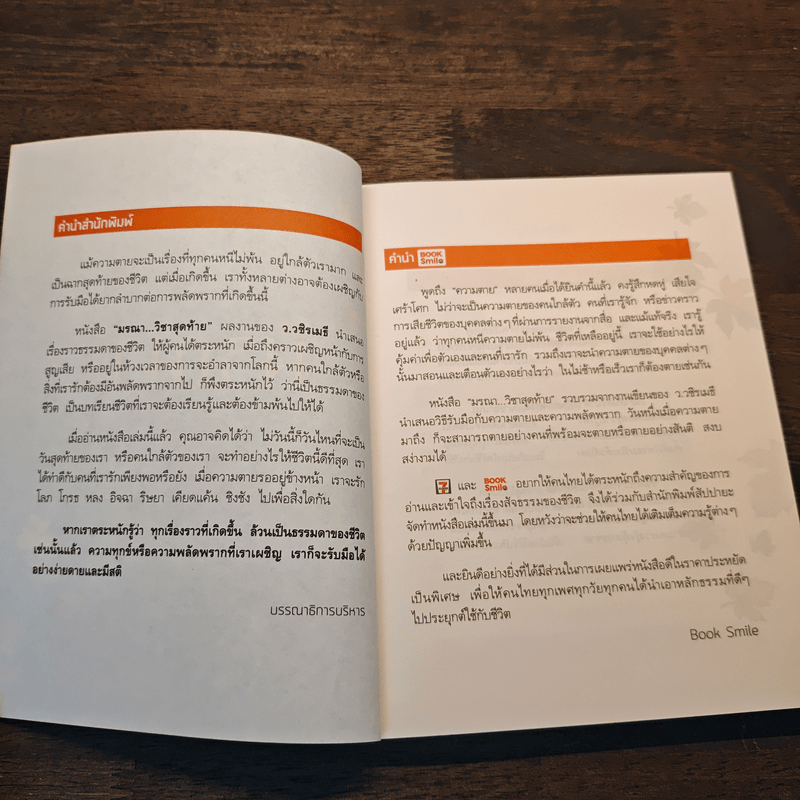 คำนำสำนักพิมพ์
แม้ความตายจะเป็นเรื่องที่ทุกคนหนีไม่พ้น อยู่ใกล้ตัวเรามาก และ
เป็นฉากสุดท้ายของชีวิต แต่เมื่อเกิดขึ้น เราทั้งหลายต่างอาจต้องเผชิญกับ
การรับมือได้ยากลำบากต่อการพลัดพรากที่เกิดขึ้นนี้
หนังสือ “มรณา...วิชาสุดท้าย” ผลงานของ ว.วชิรเมธี นำเสนอ
เรื่องราวธรรมดาของชีวิต ให้ผู้คนได้ตระหนัก เมื่อถึงคราวเผชิญหน้ากับการ
สูญเสีย หรืออยู่ในห้วงเวลาของการจะอำลาจากโลกนี้ หากคนใกล้ตัวหรือ
สิ่งที่เรารักต้องมีอันพลัดพรากจากไป ก็พึงตระหนักไว้ ว่านี่เป็นธรรมดาของ
ชีวิต เป็นบทเรียนชีวิตที่เราจะต้องเรียนรู้และต้องข้ามพ้นไปให้ได้
เมื่ออ่านหนังสือเล่มนี้แล้ว คุณอาจคิดได้ว่า ไม่วันนี้ก็วันไหนที่จะเป็น
วันสุดท้ายของเรา หรือคนใกล้ตัวของเรา จะทำอย่างไรให้ชีวิตนี้ดีที่สุด เรา
ได้ทำดีกับคนที่เรารักเพียงพอหรือยัง เมื่อความตายรออยู่ข้างหน้า เราจะรัก
โลภ โกรธ หลง อิจฉา ริษยา เคียดแค้น ชิงชัง ไปเพื่อสิ่งใดกัน
หากเราตระหนักรู้ว่า ทุกเรื่องราวที่เกิดขึ้น ล้วนเป็นธรรมดาของชีวิต
เช่นนั้นแล้ว ความทุกข์หรือความพลัดพรากที่เราเผชิญ เราก็จะรับมือได้
อย่างง่ายดายและมีสติ
บรรณาธิการบริหาร
คำนำ BOOK Smile
พูดถึง “ความตาย” หลายคนเมื่อได้ยินคำนี้แล้ว คงรู้สึกหดหู่ เสียใจ
เศร้าโศก ไม่ว่าจะเป็นความตายของคนใกล้ตัว คนที่เรารู้จัก หรือข่าวคราว
การเสียชีวิตของบุคคลต่างๆ ที่ผ่านการรายงานจากสื่อ และแม้แท้จริง เรารู้
อยู่แล้ว ว่าทุกคนหนีความตายไม่พ้น ชีวิตที่เหลืออยู่นี้ เราจะใช้อย่างไรให้
คุ้มค่าเพื่อตัวเองและคนที่เรารัก รวมถึงเราจะนำความตายของบุคคลต่างๆ
นั้นมาสอนและเตือนตัวเองอย่างไรว่า ในไม่ช้าหรือเร็วเราก็ต้องตายเช่นกัน
หนังสือ “มรณา...วิชาสุดท้าย” รวบรวมจากงานเขียนของ ว.วชิรเมธี
นำเสนอวิธีรับมือกับความตายและความพลัดพราก วันหนึ่งเมื่อความตาย
มาถึง ก็จะสามารถตายอย่างคนที่พร้อมจะตายหรือตายอย่างสันติ สงบ
สง่างามได้
7 ELEVEN และ BOOK Smile อยากให้คนไทยได้ตระหนักถึงความสำคัญของการ
อ่านและเข้าใจถึงเรื่องสัจธรรมของชีวิต จึงได้ร่วมกับสำนักพิมพ์สัปปายะ
จัดทำหนังสือเล่มนี้ขึ้นมา โดยหวังว่าจะช่วยให้คนไทยได้เติมเต็มความรู้ต่างๆ
ด้วยปัญญาเพิ่มขึ้น
และยินดีอย่างยิ่งที่ได้มีส่วนในการเผยแพร่หนังสือดีในราคาประหยัด
เป็นพิเศษ เพื่อให้คนไทยทุกเพศทุกวัยทุกคนได้นำเอาหลักธรรมที่ดีๆ
ไปประยุกต์ใช้กับชีวิต
Book Smile